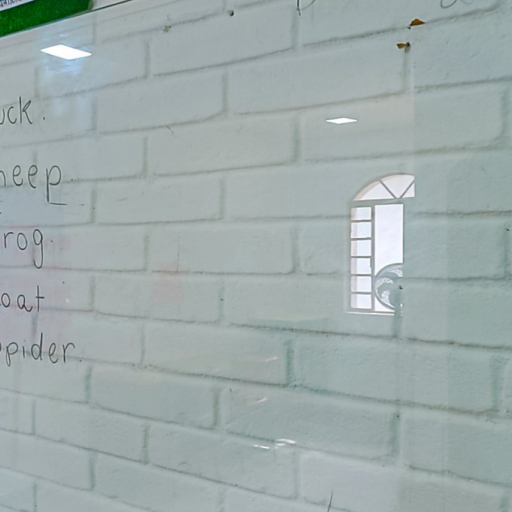 uck.
heep.
rog.
oat
pider.